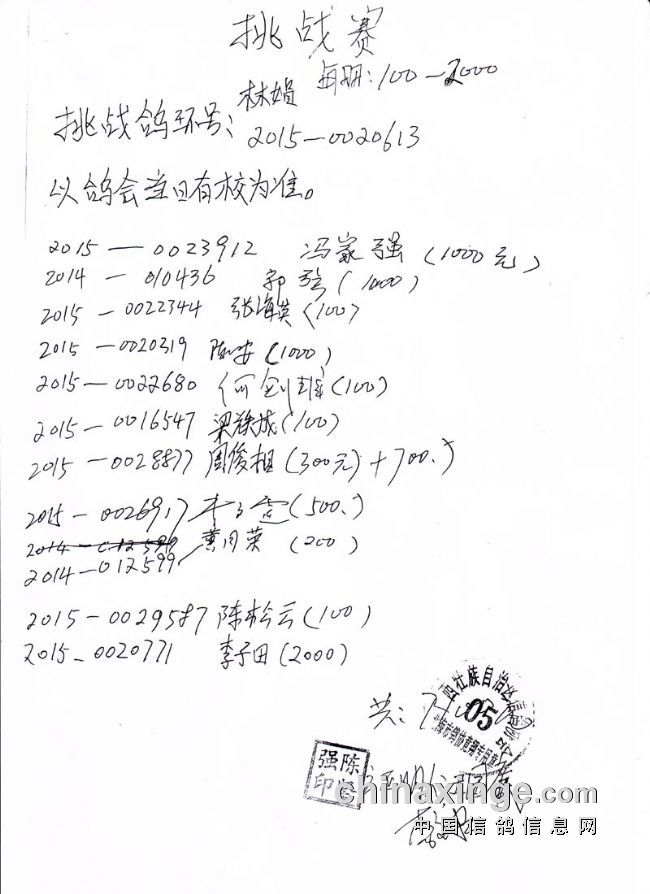 挑战赛
林娟 每羽:100-2000
挑战鸽环号: 2015-0020613
以鸽会当日有校为准。
2015-0023912 冯家强(1000元)
2014-010436 郭 (1000)
2015-0022344 张海英(100)
2015-0020319 陈安(1000)
2015-0022680 何剑雄(100)
2015-0016547 梁 成(100)
2015-0028877 周俊相(300元)+700.)
2015-0026917 (500.)
2014-012599 黄月荣(200)
2014-012599
2015-0029587 陈松云(100)
2015-0020771 李子田(2000)
共:
西壮族自治区
05
陈坚强印
chinaxinge.com
中国信鸽信息网